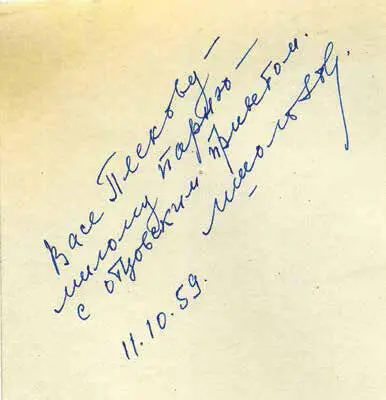 Васе Пескову —
милому парню —
с отцовским приветом.
11.10.59.